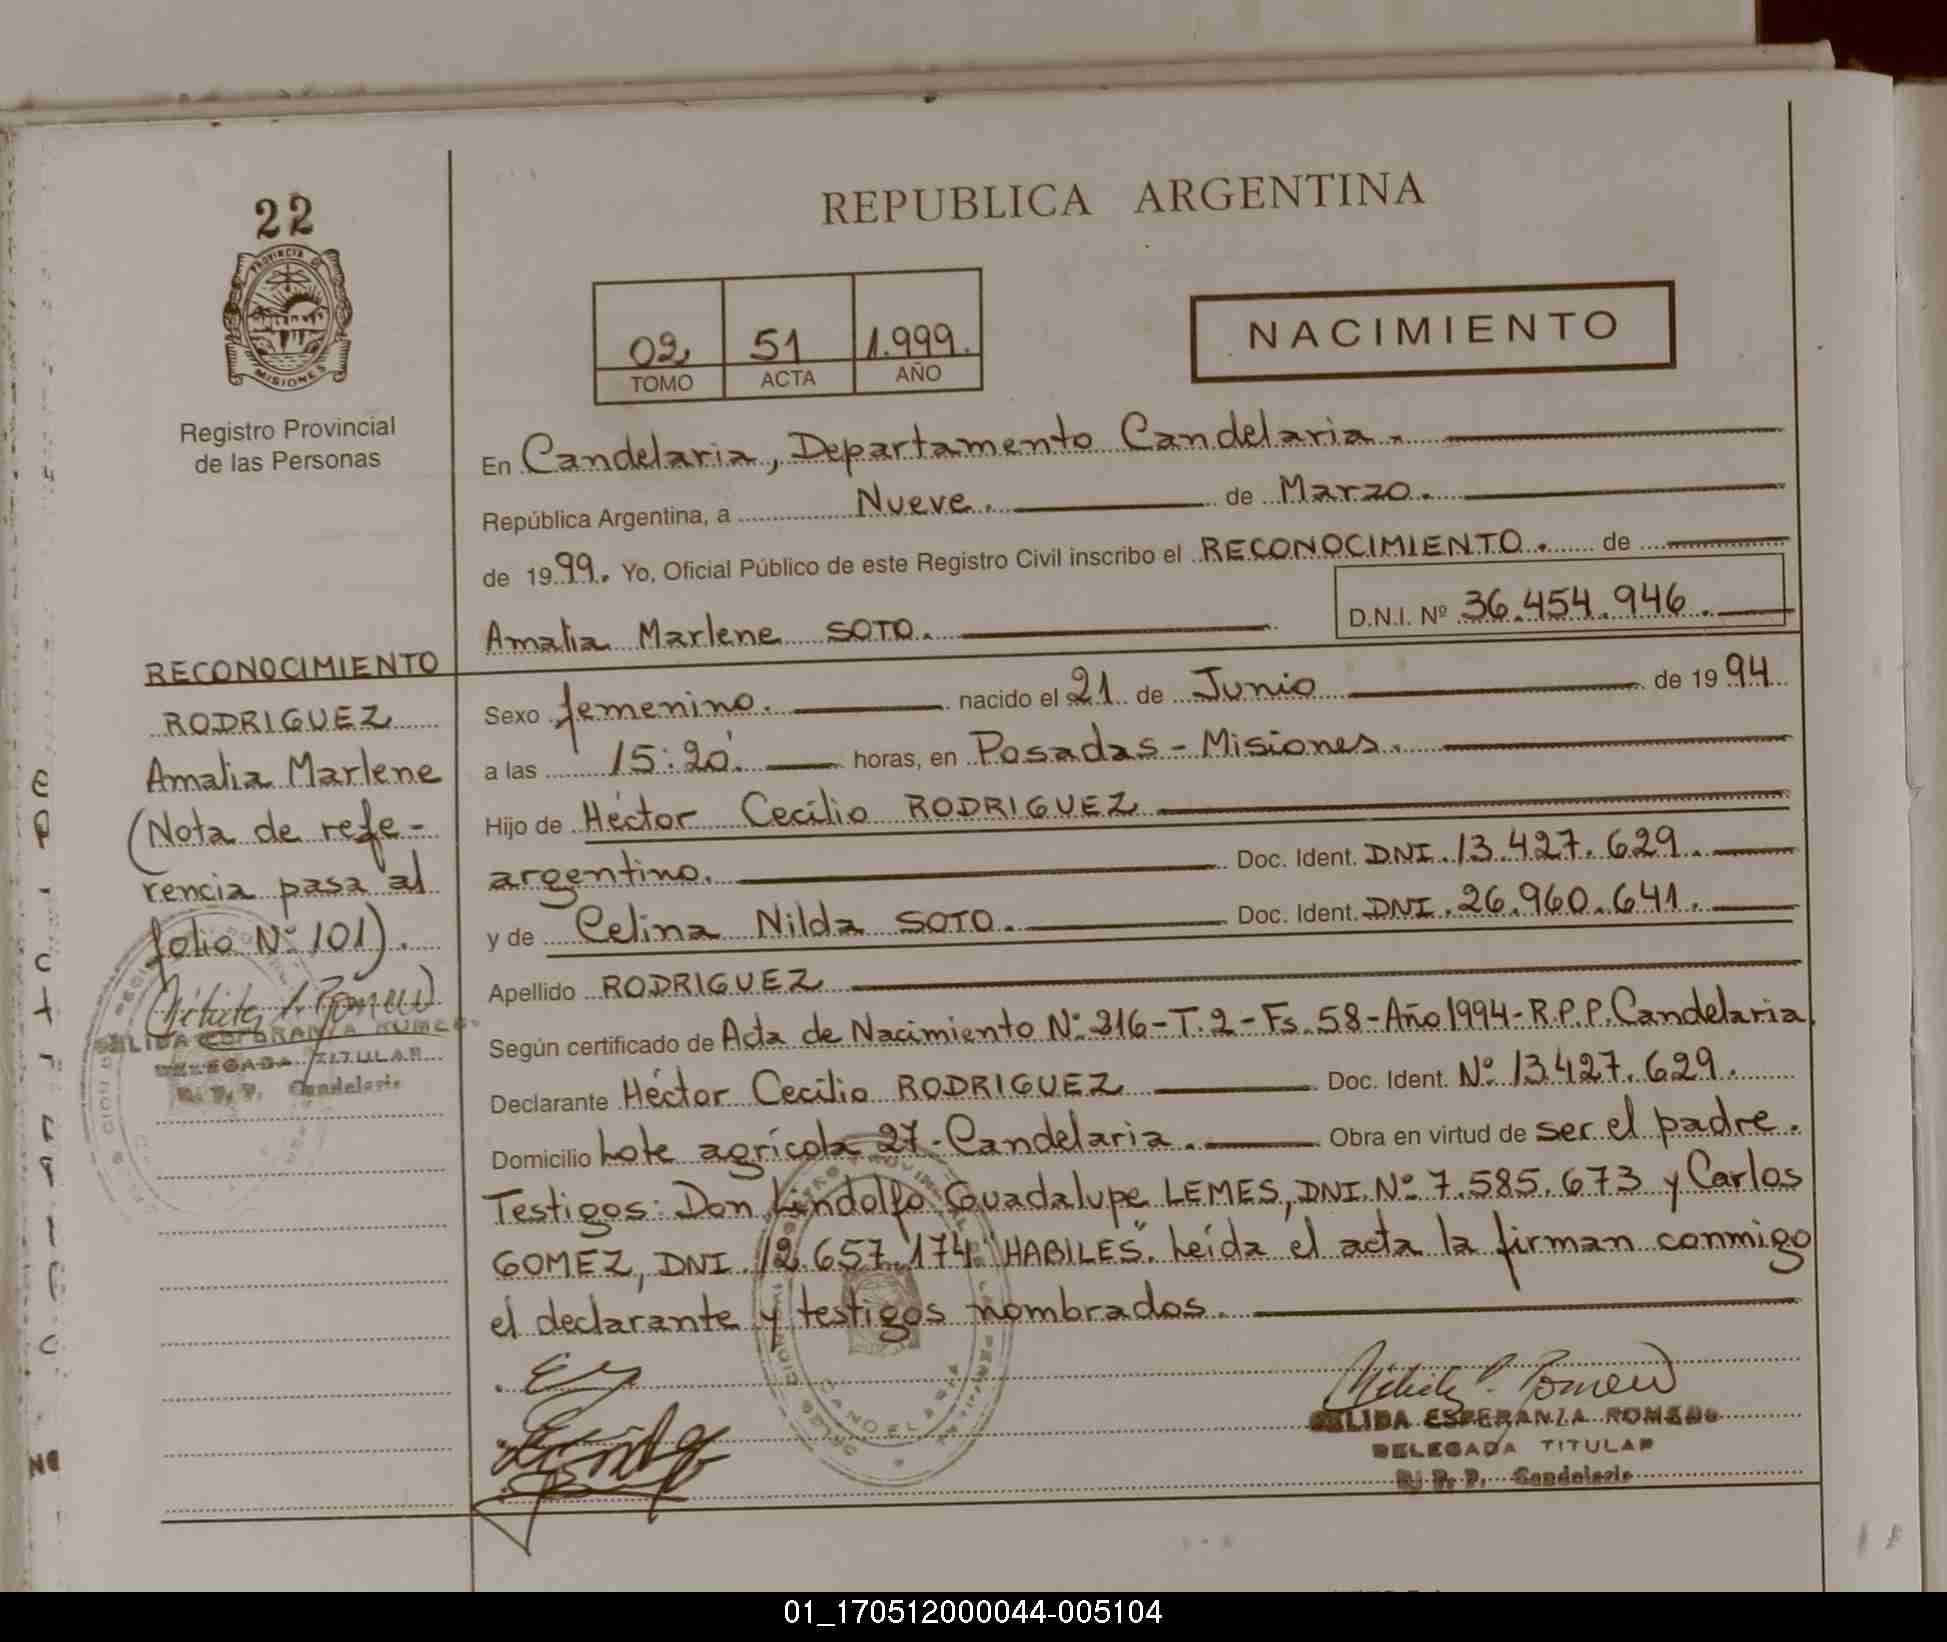 REPUBLICA ARGENTINA
22
PROVINCIA DE
MISIONES
Registro Provincial
de las Personas
02 51 1.999.
TOMO ACTA AÑO
NACIMIENTO
En Candelaria, Departamento Candelaria.
República Argentina, a Nueve. de Marzo.
de 1999. Yo, Oficial Público de este Registro Civil inscribo el RECONOCIMIENTO. de
D.N.I. Nº 36.454.946.
Amalia Marlene SOTO.
Sexo femenino. nacido el 21 de Junio de 1994
a las 15:20'. horas, en Posadas - Misiones.
Hijo de Héctor Cecilio RODRIGUEZ
argentino. Doc. Ident. DNI. 13.427.629.
y de Celina Nilda SOTO. Doc. Ident. DNI. 26.960.641.
Apellido RODRIGUEZ
Según certificado de Acta de Nacimiento Nº 216-T.2-Fs.58-Año 1994-R.P.P. Candelaria.
Declarante Héctor Cecilio RODRIGUEZ Doc. Ident. Nº 13.427.629.
Domicilio Lote agrícola 27-Candelaria. Obra en virtud de ser el padre.
Testigos: Don Lindolfo Guadalupe LEMES, DNI. Nº 7.585.673 y Carlos
GOMEZ, DNI. 12.657.174 "HABILES". Leída el acta la firman conmigo
el declarante y testigos nombrados.
ESPERANZA ROMERO
DELEGADA TITULAR
R. P. P. Candelaria
RECONOCIMIENTO
RODRIGUEZ
Amalia Marlene
(Nota de refe-
rencia pasa al
folio Nº 101).
ESPERANZA ROMERO
DELEGADA TITULAR
R. P. P. Candelaria
01_170512000044-005104